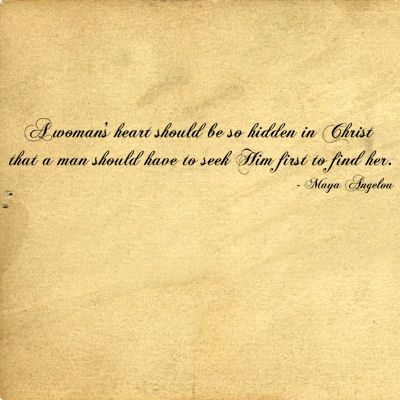 A woman's heart should be so hidden in Christ
that a man should have to seek Him first to find her.
- Maya Angelou